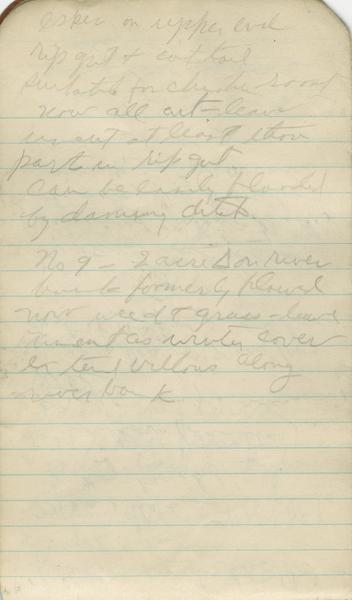 esker on upper end
rip gut & cattail
suitable for chicken roost
now all cut - leave
uncut at least those
parts in rip gut.
Can be easily flooded
by damming ditch.
No 9 - 2 acre Δ on river
bank formerly plowed
now weed & grass - leave
uncut as winter cover
extend willows along
river bank